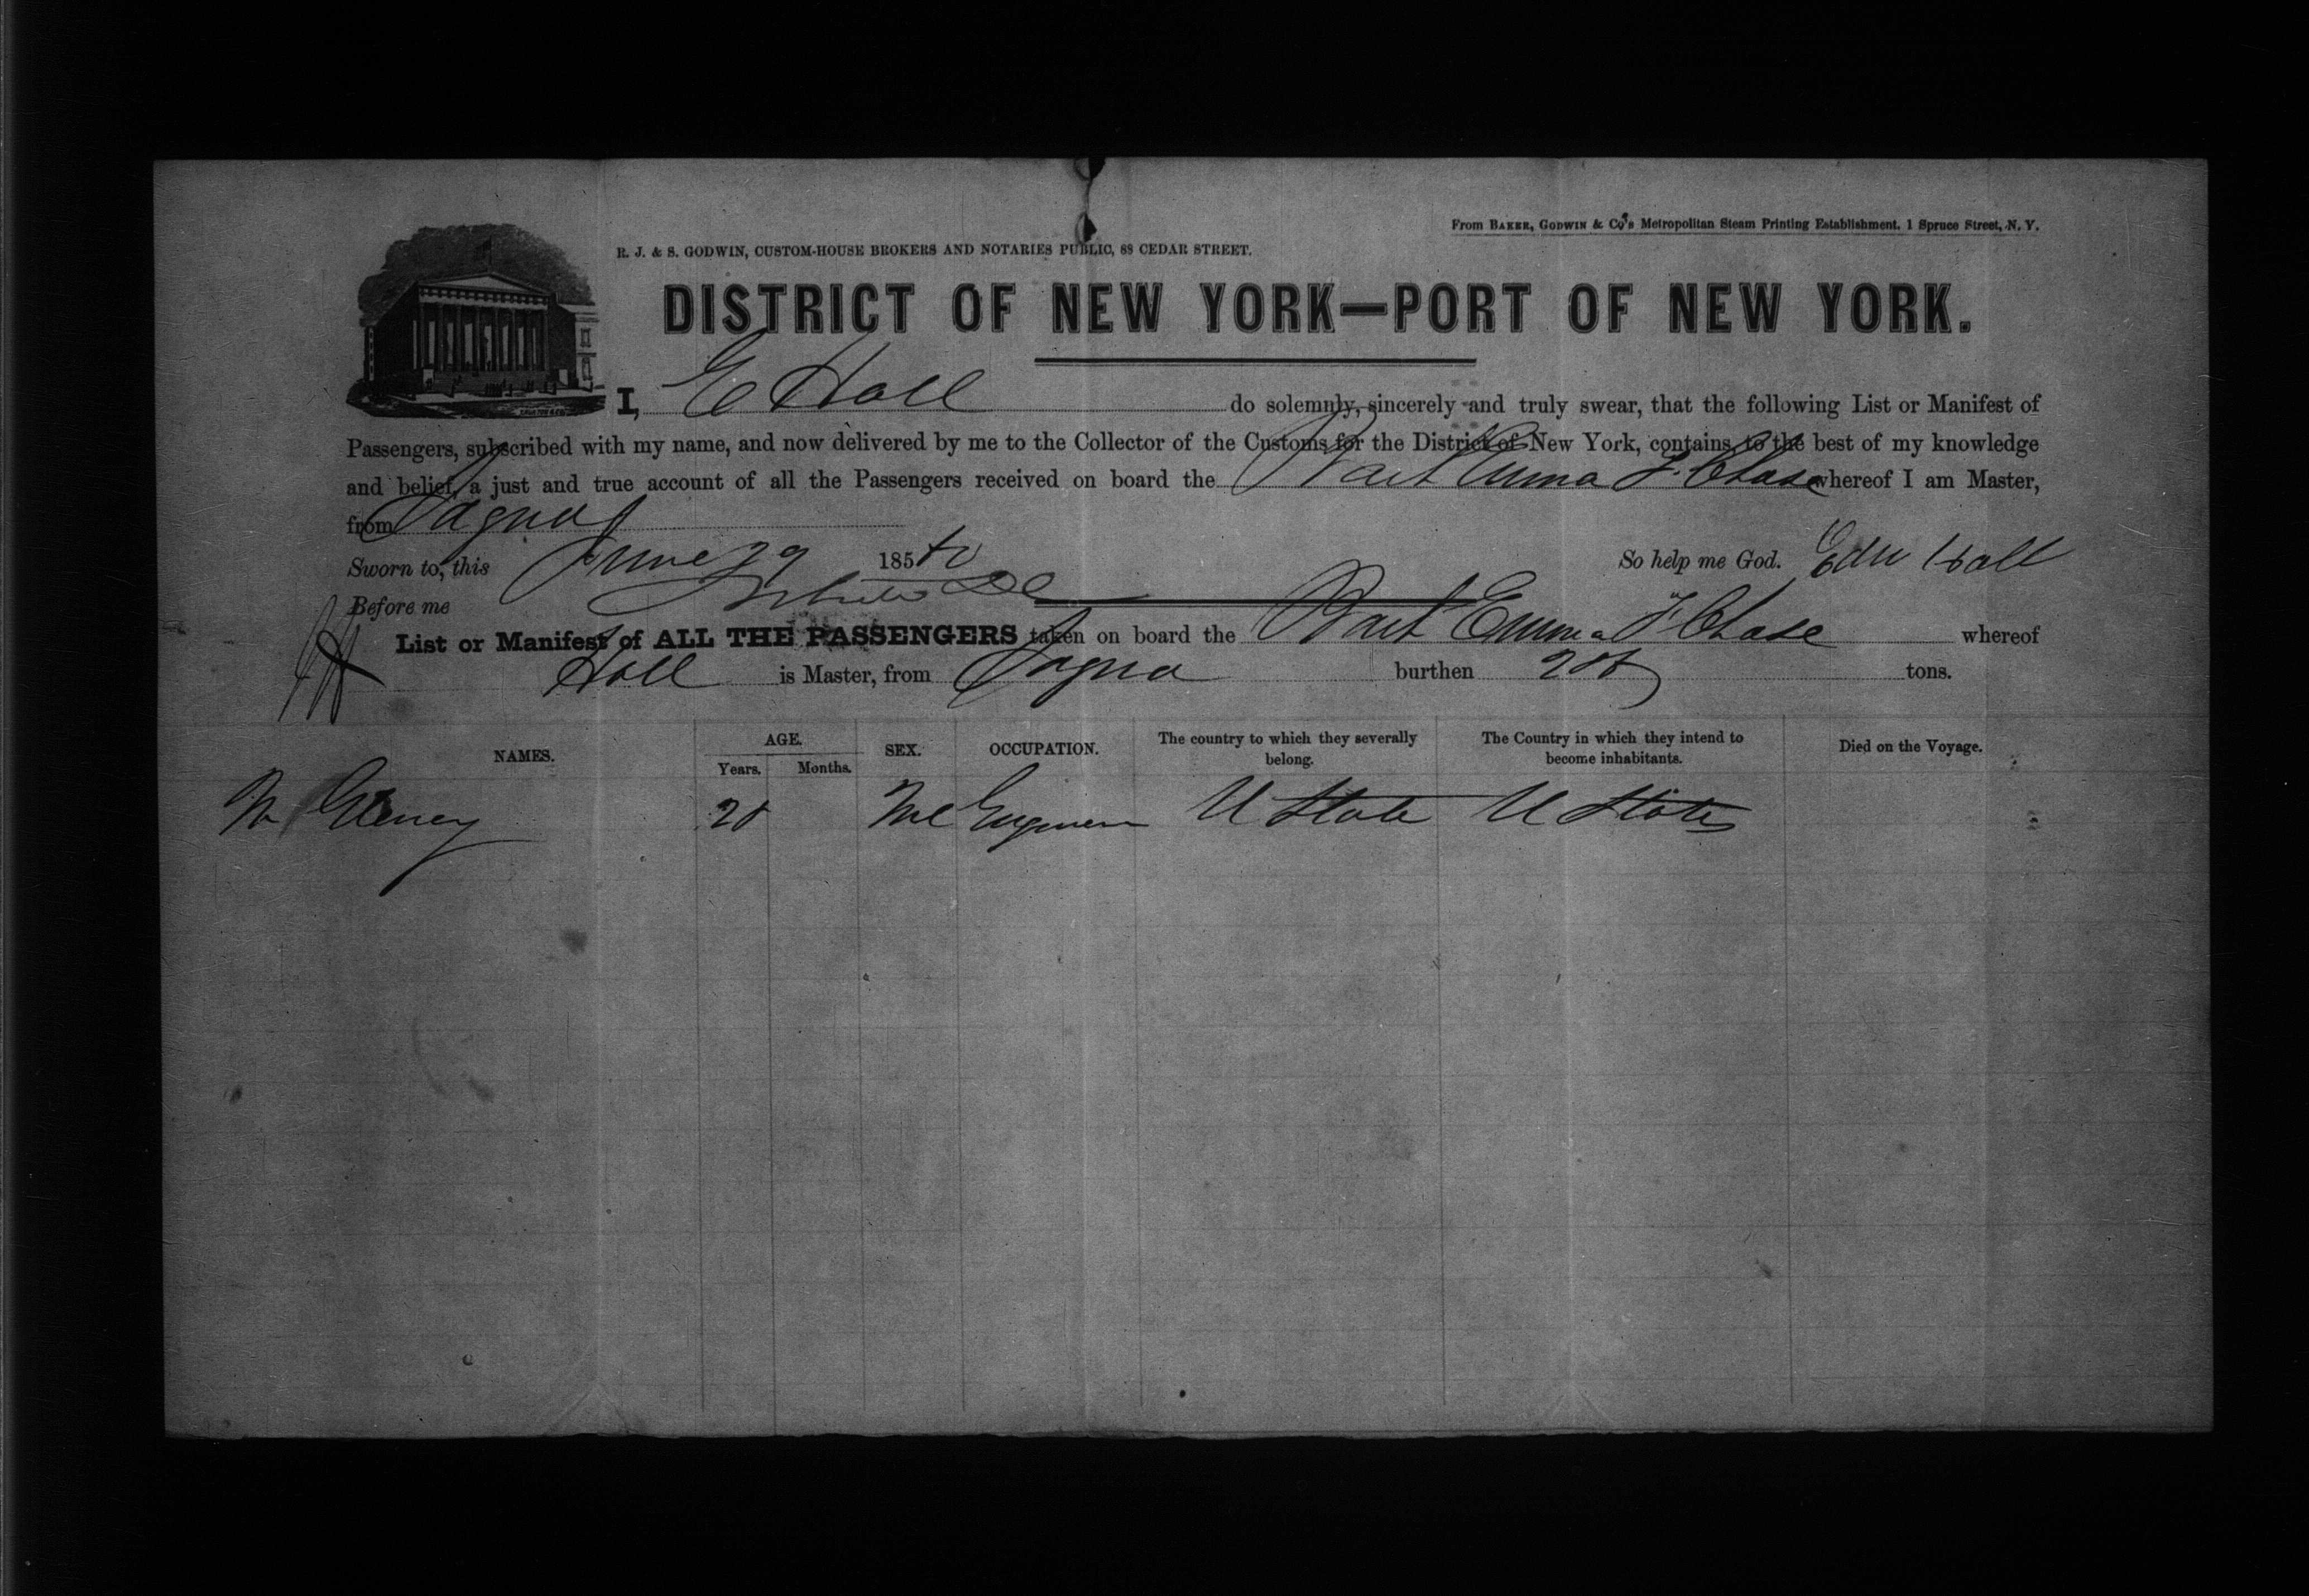 From BAKER, GODWIN & Co's Metropolitan Steam Printing Establishment. 1 Spruce Street, N. Y.
R. J. & S. GODWIN, CUSTOM-HOUSE BROKERS AND NOTARIES PUBLIC, 68 CEDAR STREET.
DISTRICT OF NEW YORK—PORT OF NEW YORK.
I, E Hall do solemnly, sincerely and truly swear, that the following List or Manifest of
Passengers, subscribed with my name, and now delivered by me to the Collector of the Customs for the District of New York, contains to the best of my knowledge
and belief, a just and true account of all the Passengers received on board the Emma F. Chase whereof I am Master,
from Sagua
Sworn to, this June 29 185 So help me God. Edw Hall
Before me
List or Manifest of ALL THE PASSENGERS taken on board the Emma F Chase whereof
Hall is Master, from Sagua burthen tons.
NAMES. AGE. Years. Months. SEX. OCCUPATION. The country to which they severally belong. The Country in which they intend to become inhabitants. Died on the Voyage.
U State U States